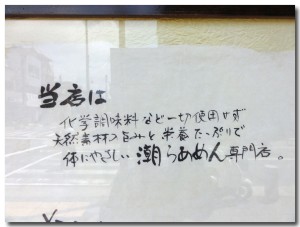 当店は
化学調味料など一切使用せず
天然素材の旨みと栄養たっぷりで
体にやさしい潮らあめん専門店。